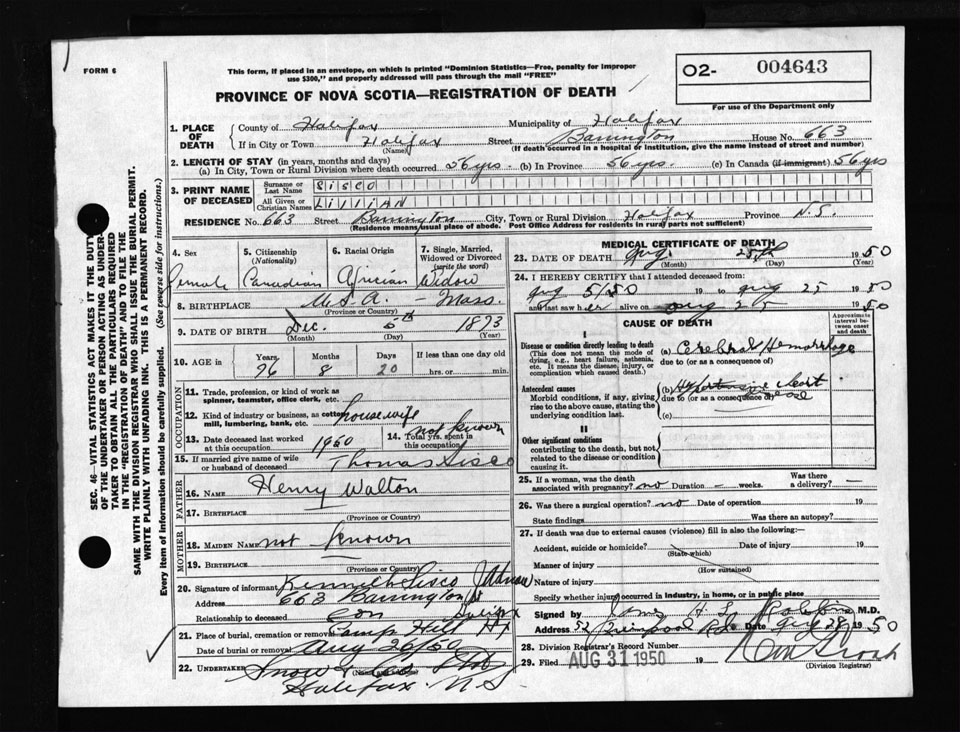 FORM 6
This form, if placed in an envelope, on which is printed "Dominion Statistics—Free, penalty for improper
use $300," and properly addressed will pass through the mail "FREE"
O2- 004643
For use of the Department only
PROVINCE OF NOVA SCOTIA—REGISTRATION OF DEATH
1. PLACE OF DEATH
County of Halifax Municipality of Halifax
If in City or Town Halifax Street Barrington House No. 663
(Name) (If death occurred in a hospital or institution, give the name instead of street and number)
2. LENGTH OF STAY (in years, months and days)
(a) In City, Town or Rural Division where death occurred 56 yrs. (b) In Province 56 yrs. (c) In Canada (if immigrant) 56 yrs
3. PRINT NAME OF DECEASED
Surname or Last Name SISCO
All Given or Christian Names LILLIAN
RESIDENCE No. 663 Street Barrington City, Town or Rural Division Halifax Province N.S.
(Residence means usual place of abode. Post Office Address for residents in rural parts not sufficient)
4. Sex 5. Citizenship (Nationality) 6. Racial Origin 7. Single, Married, Widowed or Divorced (write the word)
Female Canadian African Widow
8. BIRTHPLACE U.S.A. – Mass.
(Province or Country)
9. DATE OF BIRTH Dec. 5th 1873
(Month) (Day) (Year)
10. AGE in Years Months Days If less than one day old
76 8 20 hrs. or min.
OCCUPATION
11. Trade, profession, or kind of work as spinner, teamster, office clerk, etc.
12. Kind of industry or business, as cotton mill, lumbering, bank, etc. housewife
13. Date deceased last worked at this occupation 1950 14. Total yrs. spent in this occupation not known
15. If married give name of wife or husband of deceased Thomas Sisco
FATHER
16. NAME Henry Walton
17. BIRTHPLACE
(Province or Country)
MOTHER
18. MAIDEN NAME not known
19. BIRTHPLACE
(Province or Country)
20. Signature of informant Kenneth Sisco
Address 663 Barrington St Halifax
Relationship to deceased son
21. Place of burial, cremation or removal Camp Hill Hfx
Date of burial or removal Aug 26/50
22. UNDERTAKER Snow & Co
(Name and Address)
Halifax N.S.
MEDICAL CERTIFICATE OF DEATH
23. DATE OF DEATH Aug. 25th 1950
(Month) (Day) (Year)
24. I HEREBY CERTIFY that I attended deceased from:
Aug 5/50 19 to Aug 25 1950
and last saw her alive on Aug 25 1950
CAUSE OF DEATH
Approximate interval between onset and death
Disease or condition directly leading to death
(This does not mean the mode of dying, e.g., heart failure, asthenia, etc. It means the disease, injury, or complication which caused death.)
(a) Cerebral Hemorrhage
due to (or as a consequence of)
Antecedent causes
Morbid conditions, if any, giving rise to the above cause, stating the underlying condition last.
(b) Hypertensive heart
due to (or as a consequence of)
(c)
II
Other significant conditions
contributing to the death, but not related to the disease or condition causing it.
25. If a woman, was the death associated with pregnancy? no Duration – weeks. Was there a delivery? –
26. Was there a surgical operation? no Date of operation 19
State findings Was there an autopsy?
27. If death was due to external causes (violence) fill in also the following:—
Accident, suicide or homicide? Date of injury 19
(State which)
Manner of injury
(How sustained)
Nature of injury
Specify whether injury occurred in industry, in home, or in public place
Signed by M.D.
Address Date Aug 28 1950
28. Division Registrar's Record Number
29. Filed AUG 31 1950 19
(Division Registrar)
SEC. 46—VITAL STATISTICS ACT MAKES IT THE DUTY
OF THE UNDERTAKER OR PERSON ACTING AS UNDER-
TAKER TO OBTAIN ALL THE PARTICULARS REQUIRED
IN THE "REGISTRATION OF DEATH" AND TO FILE THE
SAME WITH THE DIVISION REGISTRAR WHO SHALL ISSUE THE BURIAL PERMIT.
WRITE PLAINLY WITH UNFADING INK. THIS IS A PERMANENT RECORD.
Every item of information should be carefully supplied. (See reverse side for instructions.)